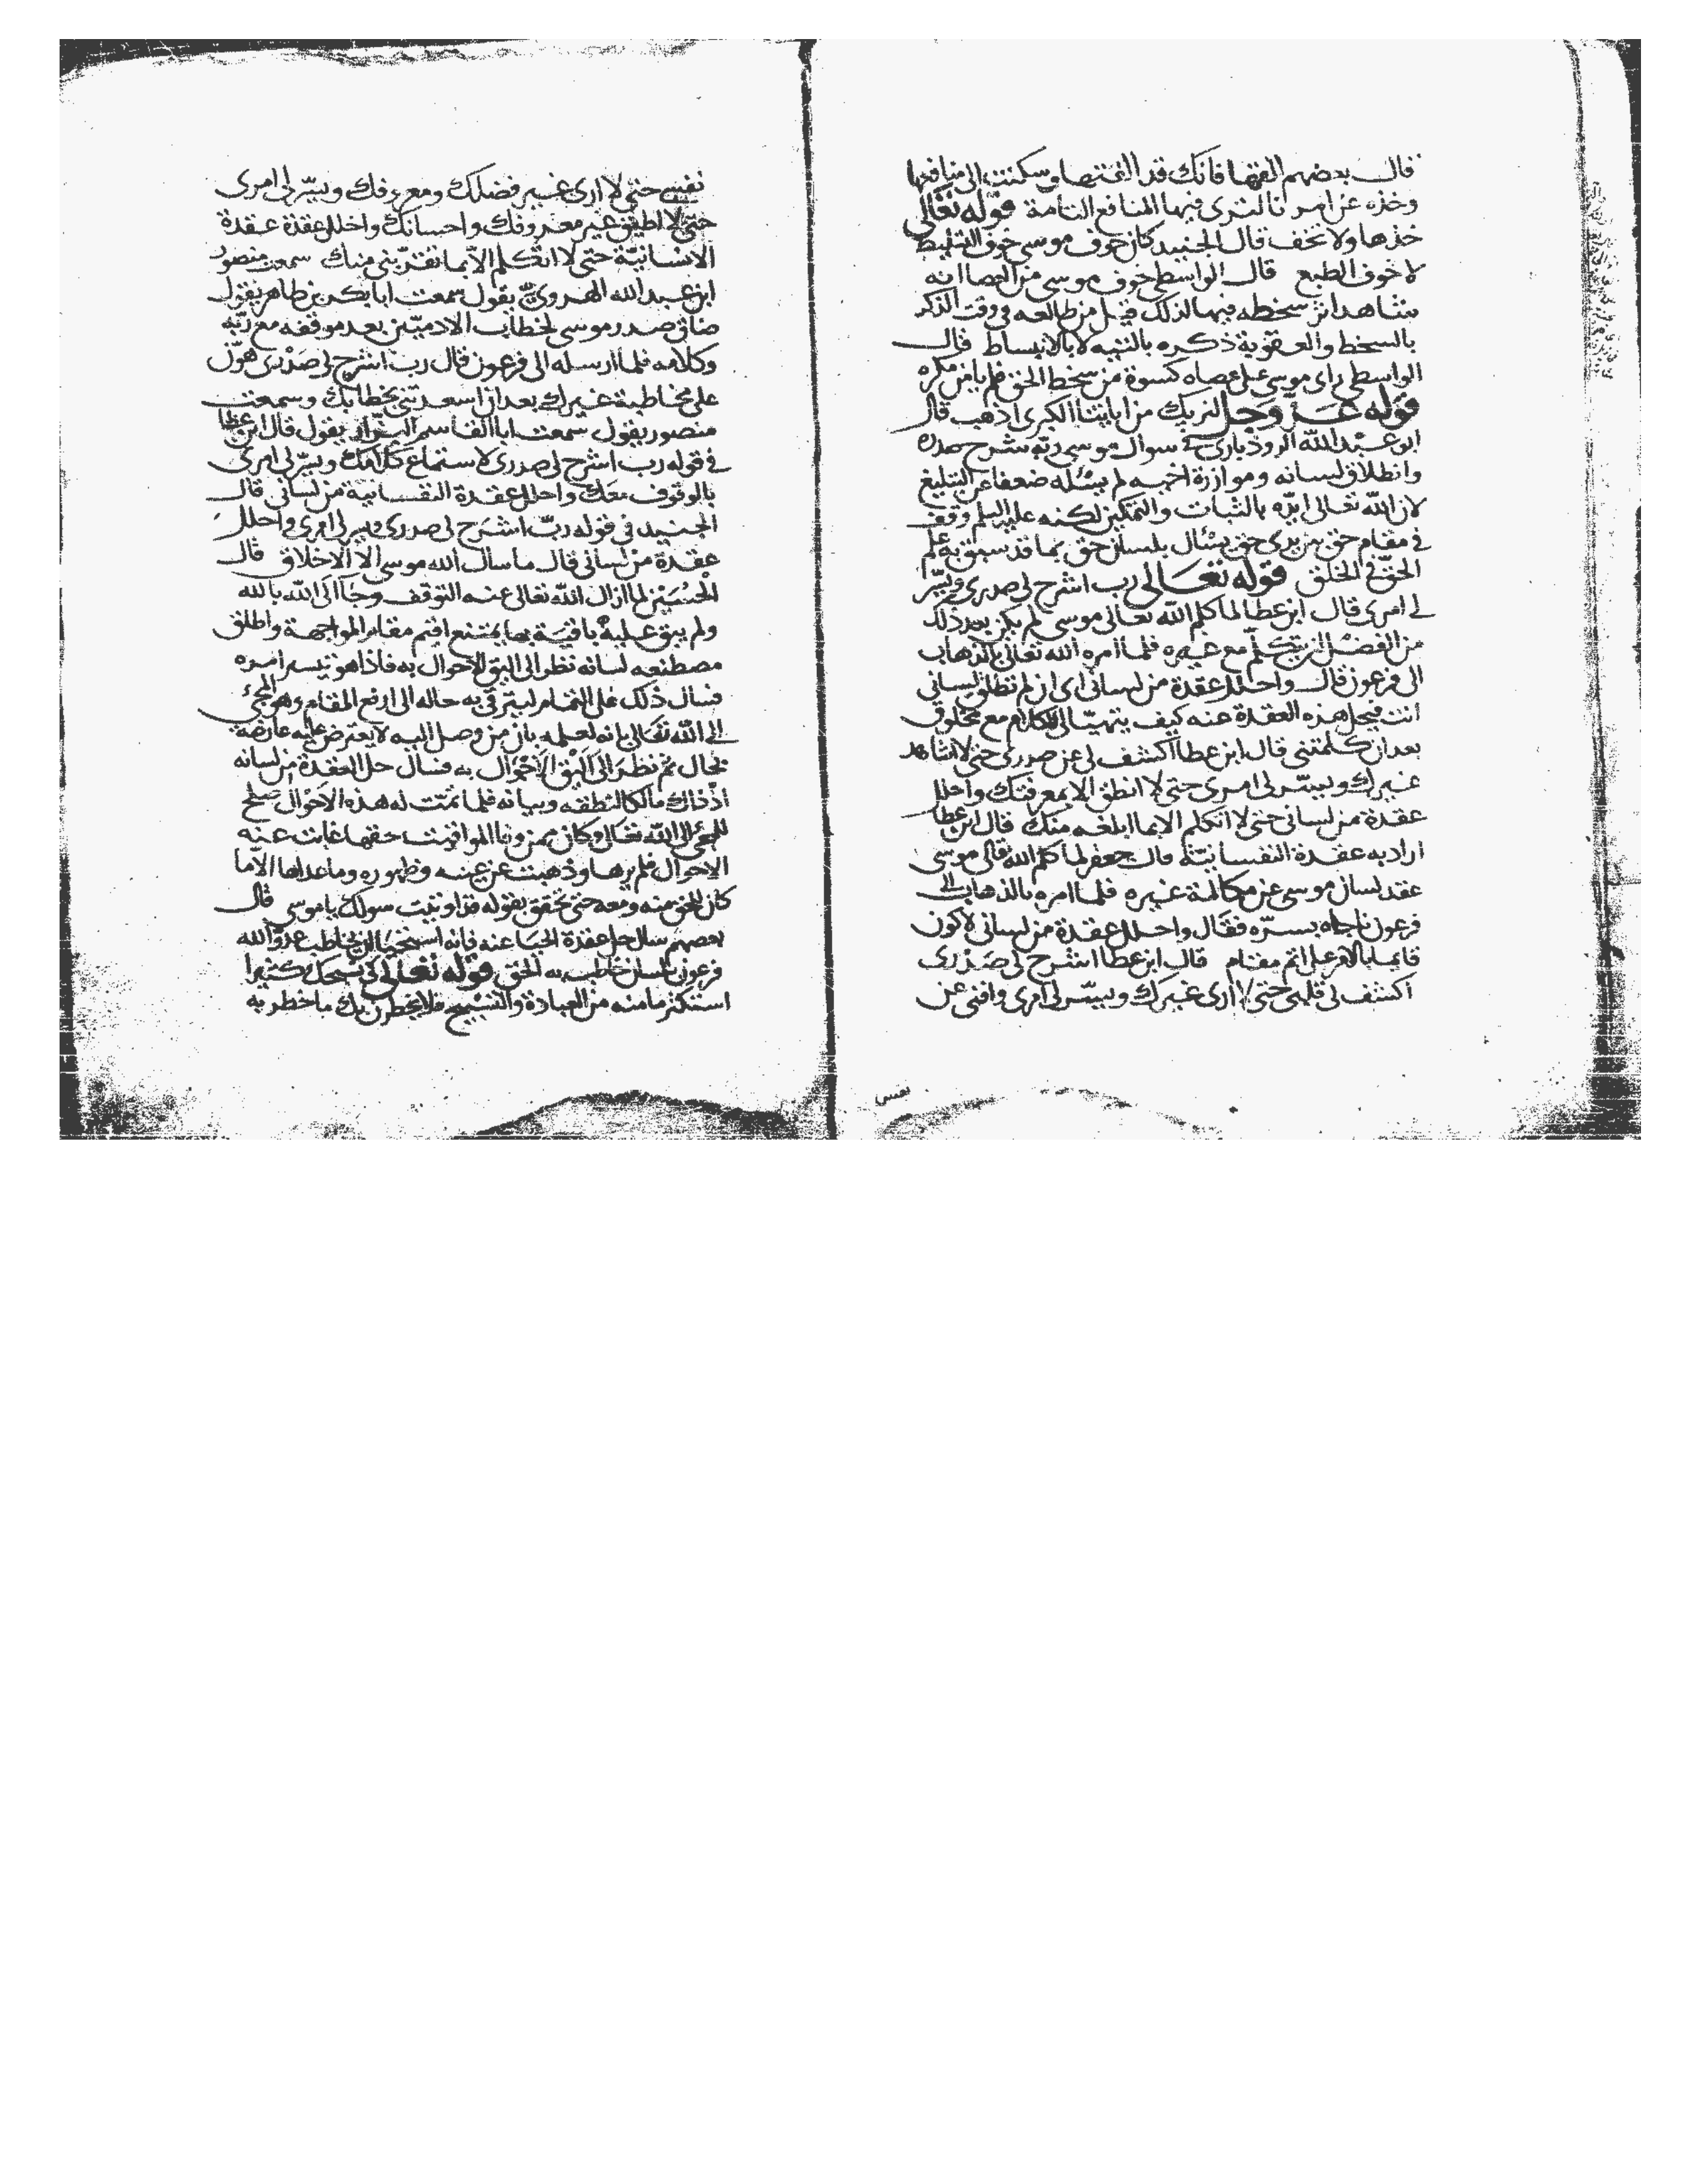 قال بعضهم القها فانك قد الفتها وسكنت الى منافعها
وخذه عن امرنا لترى فيها المنافع التامة قوله تعالى
خذها ولا تخف قال الجنيد كان خوف موسى خوف التسليط
لا خوف الطبع قال الواسطى خوف موسى من العصا انه
شاهد اثر سخطه فيها لذلك قيل من طالعه فى وقت الذكر
بالسخط والعقوبة ذكره بالتيه لا بالانبساط قال
الواسطى راى موسى على عصاه كسوة من سخط الحق فلم يامن مكره
قوله عز وجل لنريك من اياتنا الكبرى اذهب قال
ابو عبد الله الروذبارى فى سوال موسى ربه شرح صدره
وانطلاق لسانه وموازرة اخيه لم يسئله ضعفا عن التبليغ
لان الله تعالى ايّده بالثبات والتمكين لكنه عليه السلم وقف
فى مقام حق بين يدى حق يسئال بلسان حق بما قد سبق به علم
الحق فى الخلق قوله تعالى رب اشرح لى صدرى ويسّر
لى امرى قال ابن عطا لما كلم الله تعالى موسى لم يكن بعد ذلك
من الفضل ان يتكلّم مع غيره فلما امره الله تعالى بالذهاب
الى فرعون قال واحلل عقدة من لسانى اى ان لم تطلق لسانى
انت فيحل هذه العقدة عنه كيف يتهيّا لى الكلام مع مخلوق
بعد ان كلمتنى قال ابن عطا اكشف لى عن صدرى حتى لا اشاهد
غيرك ويسّر لى امرى حتى لا انطق الا بمعرفتك واحلل
عقدة من لسانى حتى لا اتكلم الا بما ابلغه منك قال ابن عطا
اراد به عقدة النفسانيّة قال جعفر لما كلم الله تعالى موسى
عقد لسان موسى عن مكالمة غيره فلما امره بالذهاب الى
فرعون ناجاه بسرّه فقال واحلل عقدة من لسانى لاكون
قايما بالامر على اتم مقام قال ابن عطا اشرح لى صدرى
اكشف لى قلبى حتى لا ارى غيرك ويسّر لى امرى وافنى عن
نفسى
نفسى حتى لا ارى غير فضلك ومعروفك ويسّر لى امرى
حتى لا اطيق غير معروفك واحسانك واحلل عقدة عقدة
الانسانيّة حتى لا اتكلم الا بما تقرّبنى منك سمعت منصور
ابن عبد الله الهروىّ يقول سمعت ابا بكر بن طاهر يقول
ضاق صدر موسى لخطاب الادميّين بعد موقفه مع ربّه
وكلامه فلما ارسله الى فرعون قال رب اشرح لى صدرى هوّن
على مخاطبة غيرك بعد ان اسعدتنى بخطابك وسمعت
منصور يقول سمعت ابا القاسم البزّاز يقول قال ابن عطا
فى قوله رب اشرح لى صدرى لاستماع كلامك ويسّر لى امرى
بالوقوف معك واحلل عقدة النفسانية من لسانى قال
الجنيد فى قوله ربّ اشرح لى صدرى ويسر لى امرى واحلل
عقدة من لسانى قال ما سال الله موسى الا الاخلاق قال
الحسين لما ازال الله تعالى عنه التوقف وجا الى الله بالله
ولم يبق عليه باقية بها يمتنع اقيم مقام المواجهة واطلق
مصطنعه لسانه نظر الى اليق الاحوال به فاذا هو تيسير امره
فسال ذلك على التمام ليترقى به حاله الى ارفع المقام وهو المجئ
الى الله تعالى بانه لعلمه بان من وصل اليه لا يعترض عليه عارضة
بحال ثم نظر الى اليق الاحوال به فسال حل العقدة من لسانه
اذ ذاك مالكا لنطقه وبيانه فلما تمت له هذه الاحوال صلح
للمجئ الى الله تعالى وكان ممن وفا المواقيت حقها غابت عنه
الاحوال فلم يرها وذهبت عن عينه وظهوره وما عداها الا ما
كان للحق منه ومعه حتى تحقق بقوله قد اوتيت سولك يا موسى قال
بعضهم سال حل عقدة الحيا عنه فانه استحيا ان يخاطب عدو الله
فرعون بلسان خاطب به الحق قوله تعالى كى نسبحك كثيرا
استكثر ما منه من العبادة والتسبيح فلا يخطرن بك ما خطر به